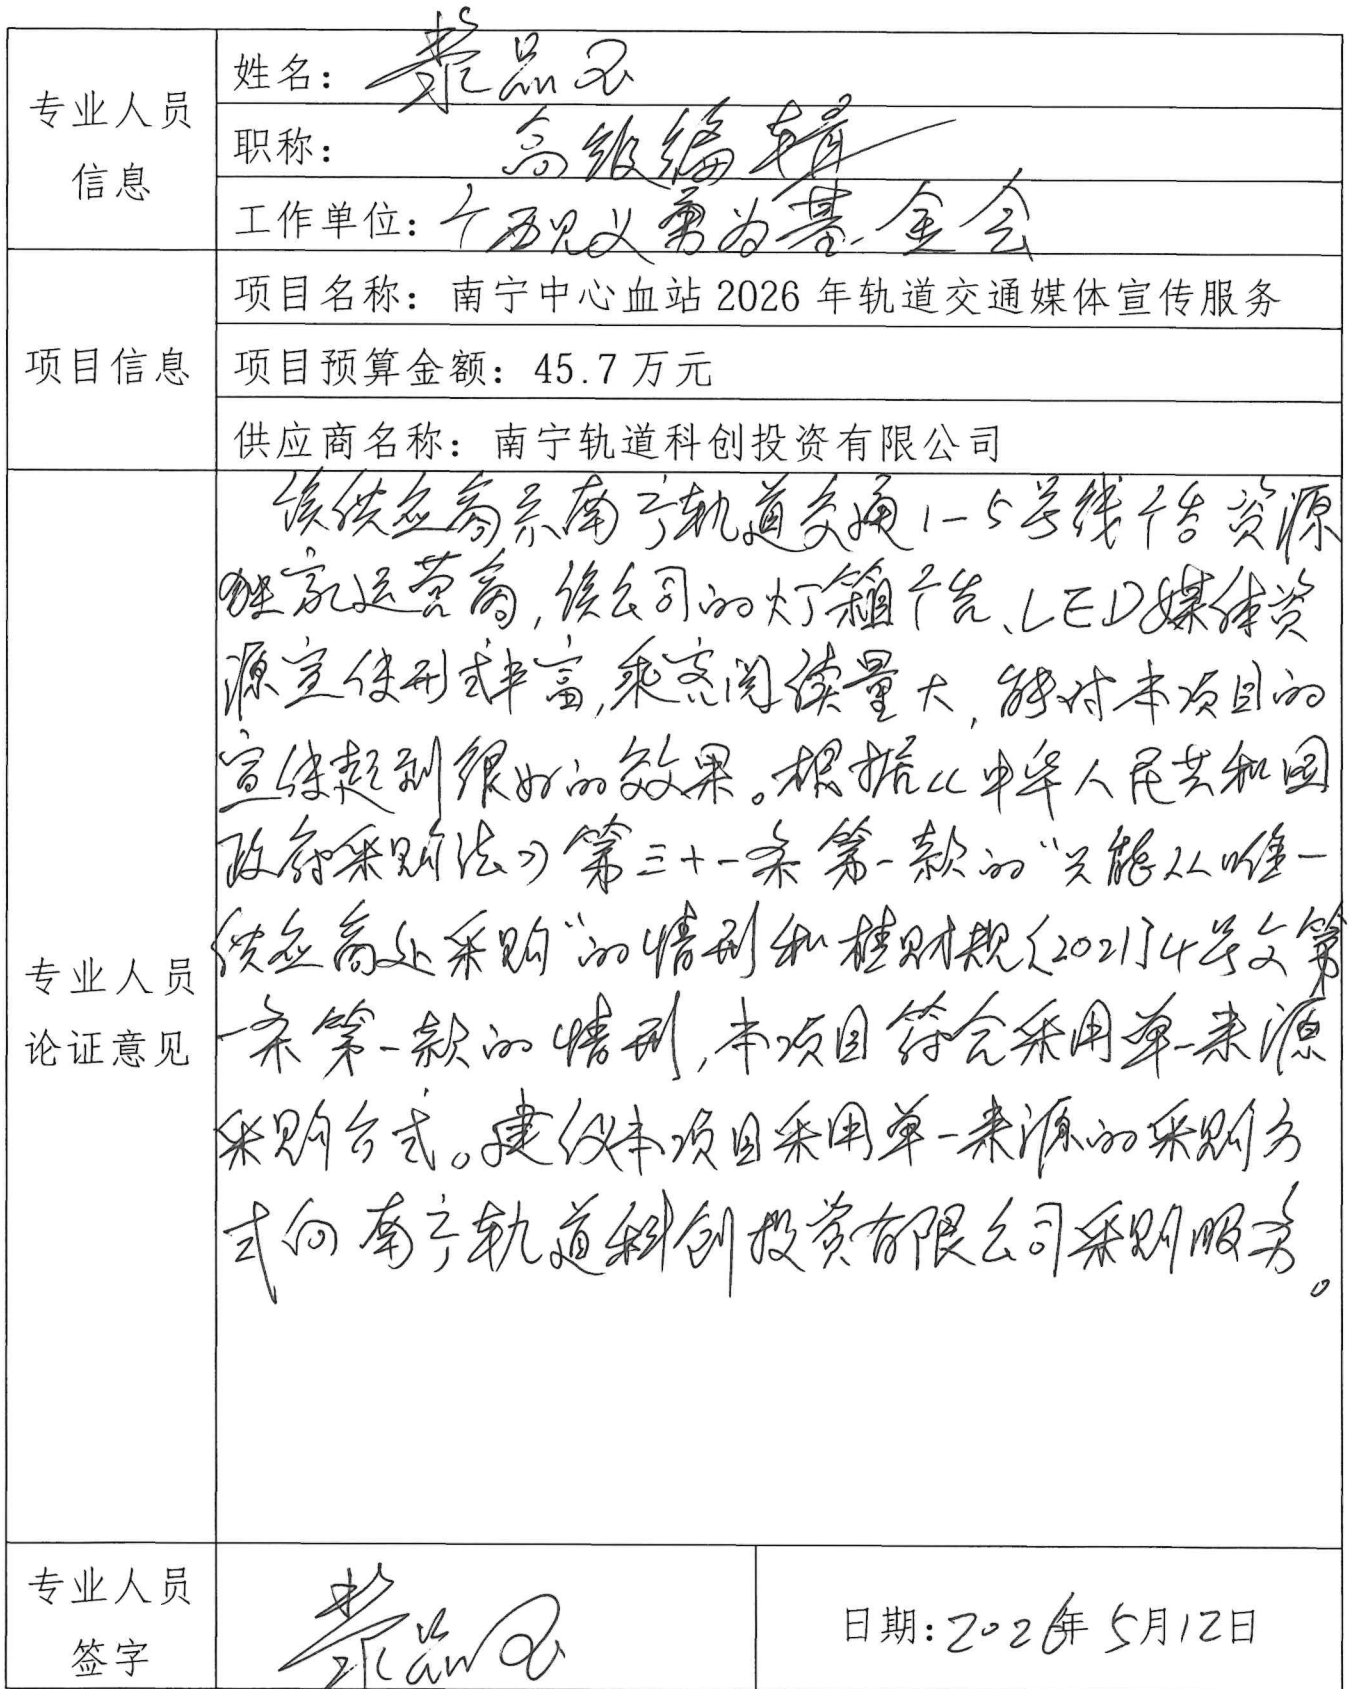 专业人员
信息
姓名：
职称：高级编辑
工作单位：广西见义勇为基金会
项目信息
项目名称：南宁中心血站 2026 年轨道交通媒体宣传服务
项目预算金额：45.7 万元
供应商名称：南宁轨道科创投资有限公司
专业人员
论证意见
该供应商系南宁轨道交通1-5号线广告资源
独家运营商，该公司的灯箱广告、LED媒体资
源宣传形式丰富，乘客阅读量大，能对本项目的
宣传起到很好的效果。根据《中华人民共和国
政府采购法》第三十一条第一款的“只能从唯一
供应商处采购”的情形和桂财规〔2021〕4号文第
一条第一款的情形，本项目符合采用单一来源
采购方式。建议本项目采用单一来源的采购方
式向南宁轨道科创投资有限公司采购服务。
专业人员
签字
日期：2026年5月12日